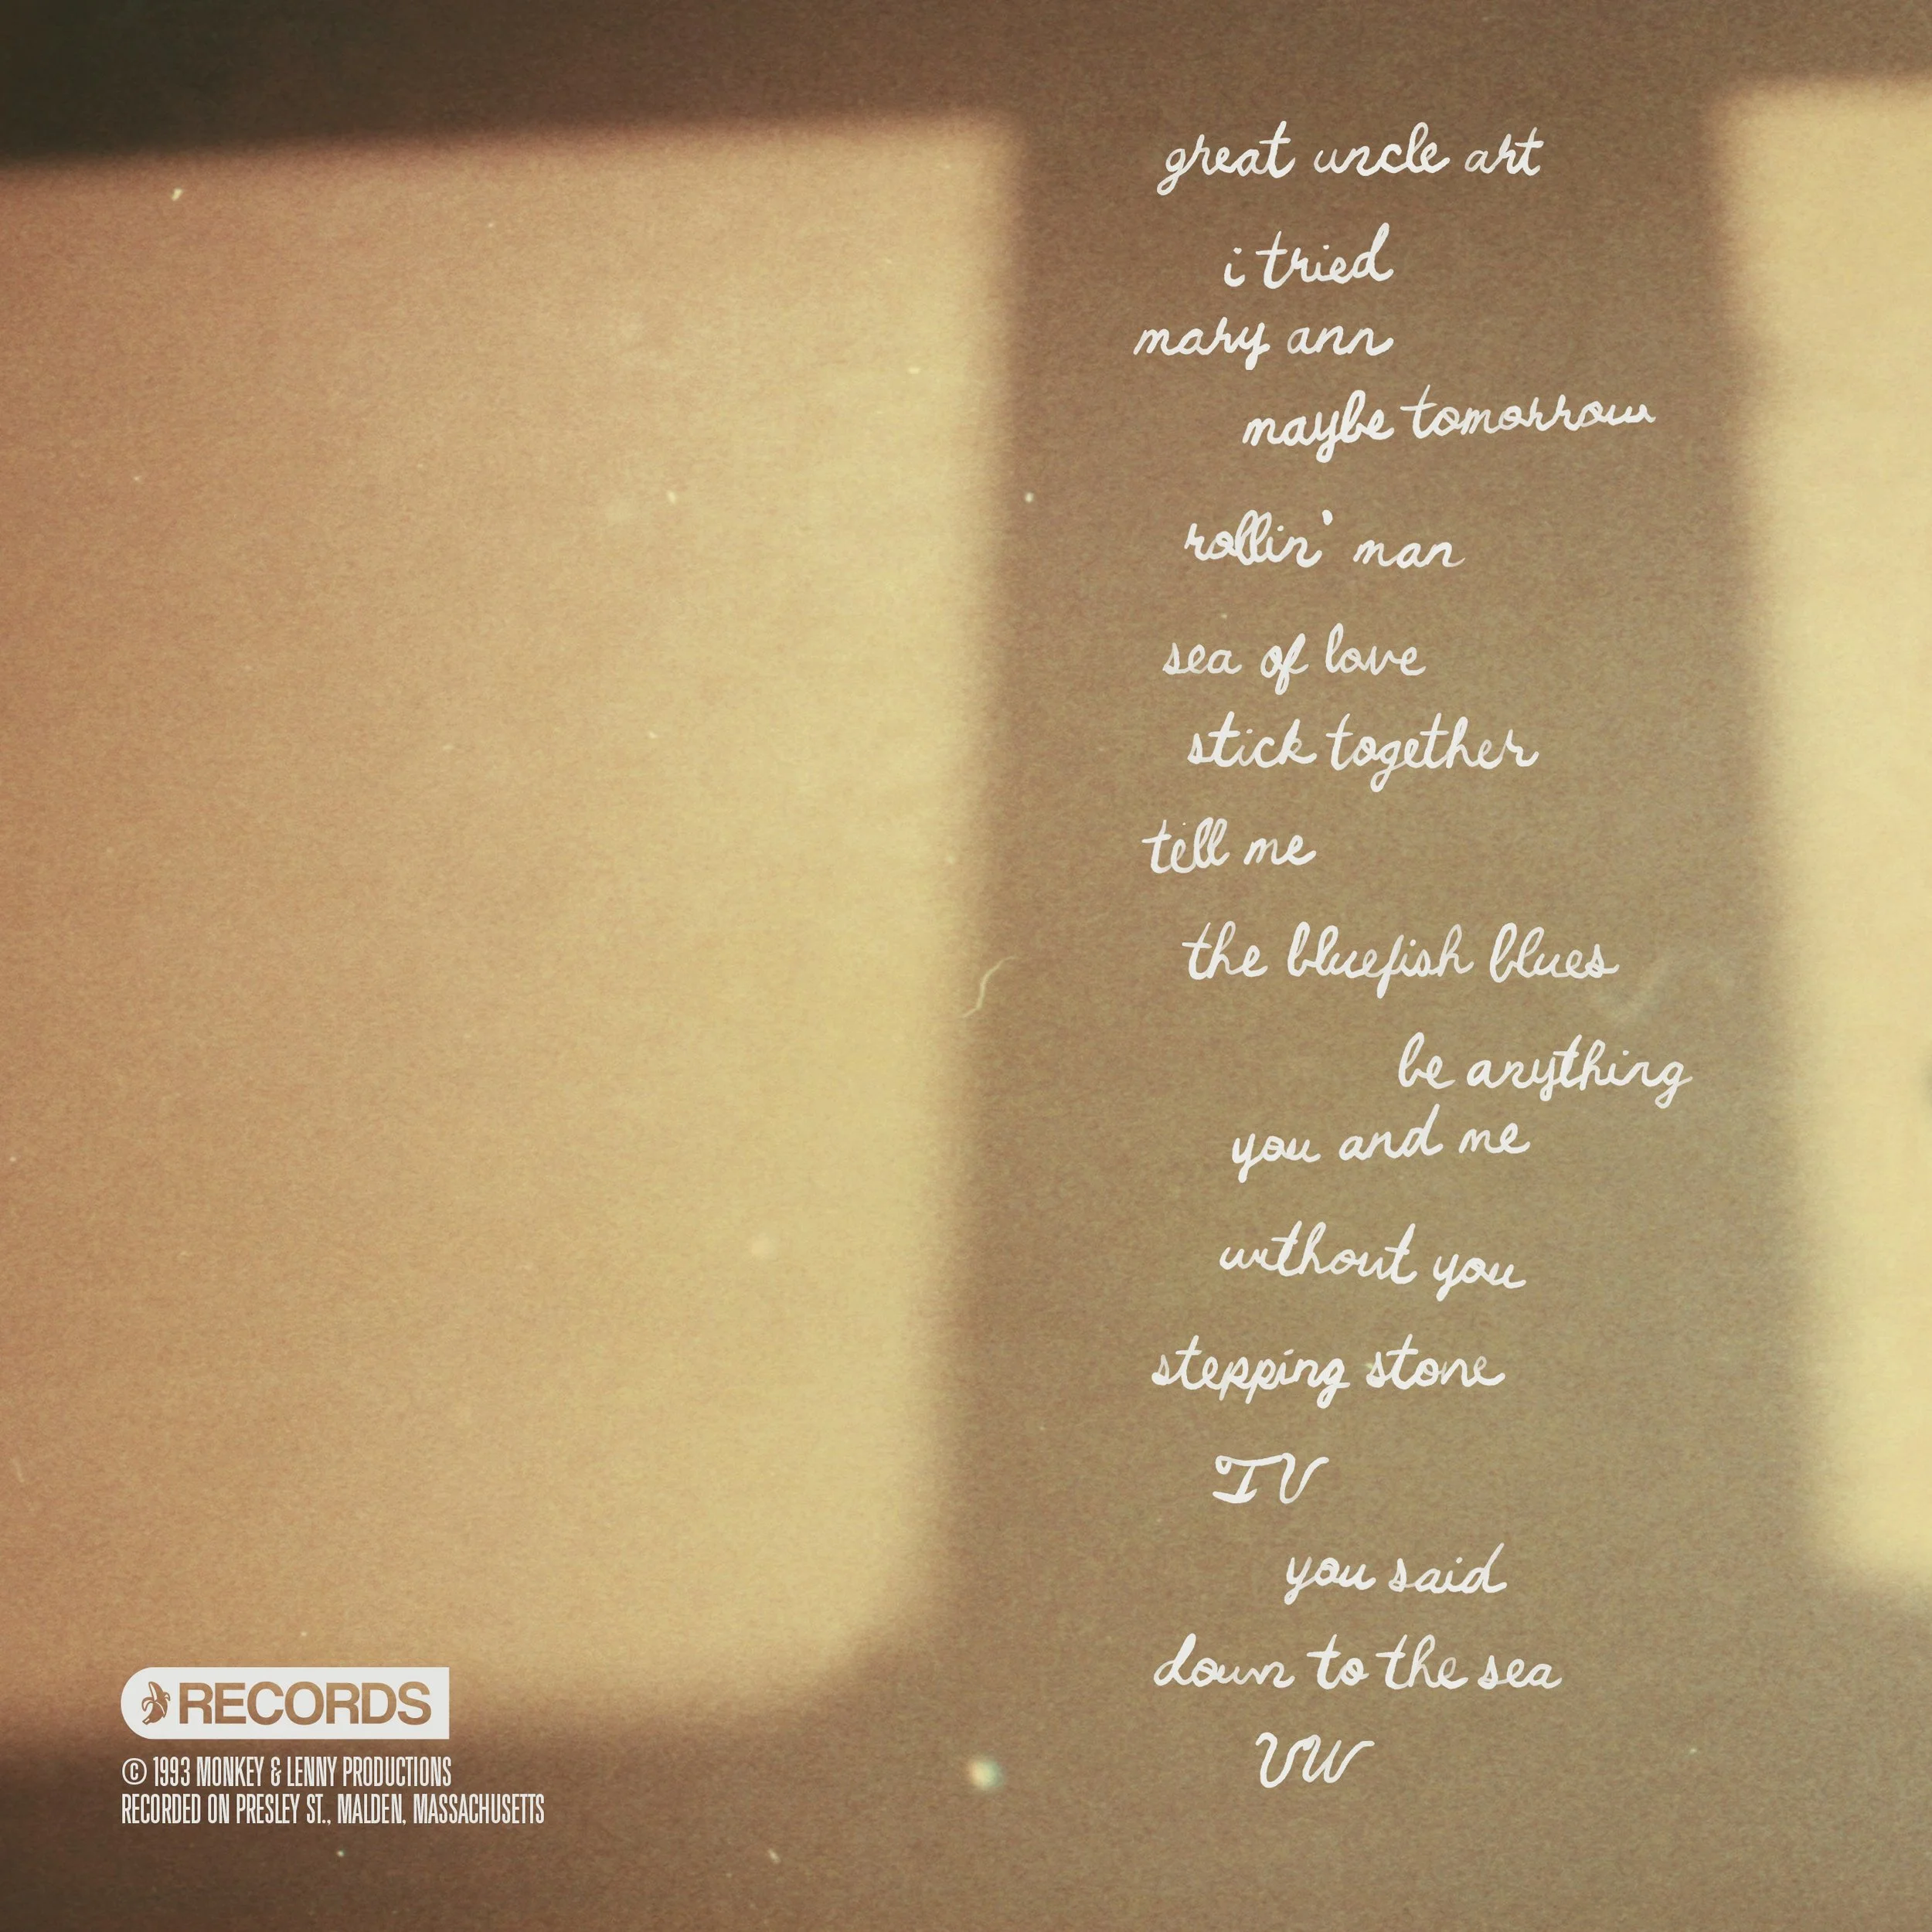 great uncle art
i tried
mary ann
maybe tomorrow
rollin' man
sea of love
stick together
tell me
the bluefish blues
be anything
you and me
without you
stepping stone
TV
you said
down to the sea
VW
RECORDS
© 1993 MONKEY & LENNY PRODUCTIONS
RECORDED ON PRESLEY ST., MALDEN, MASSACHUSETTS